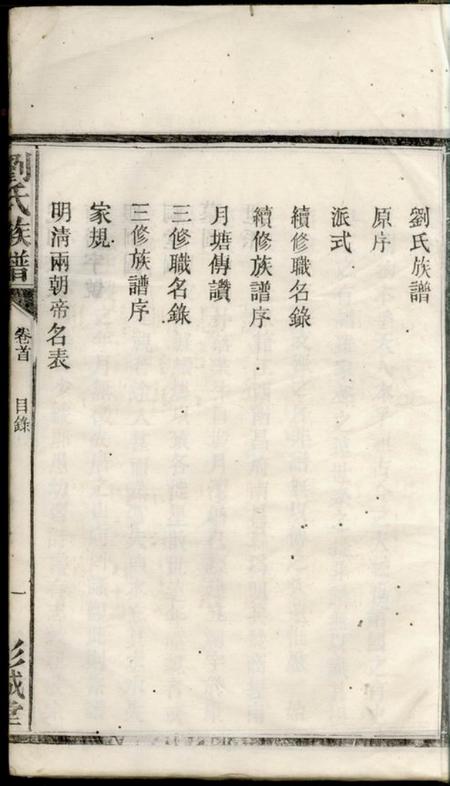 劉氏族譜
原序
派式
續修職名錄
續修族譜序
月塘傳讚
三修職名錄
三修族譜序
家規
明清兩朝帝名表
劉氏族譜
卷首
目錄
一
彭城堂